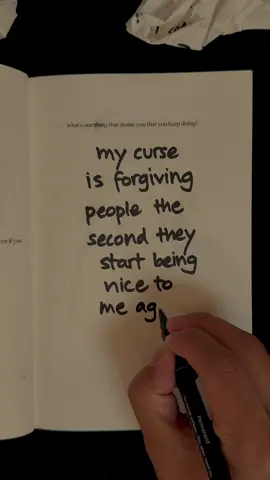 what's one thing that drains you that you keep doing?
my curse
is forgiving
people the
second they
start being
nice to
me ag